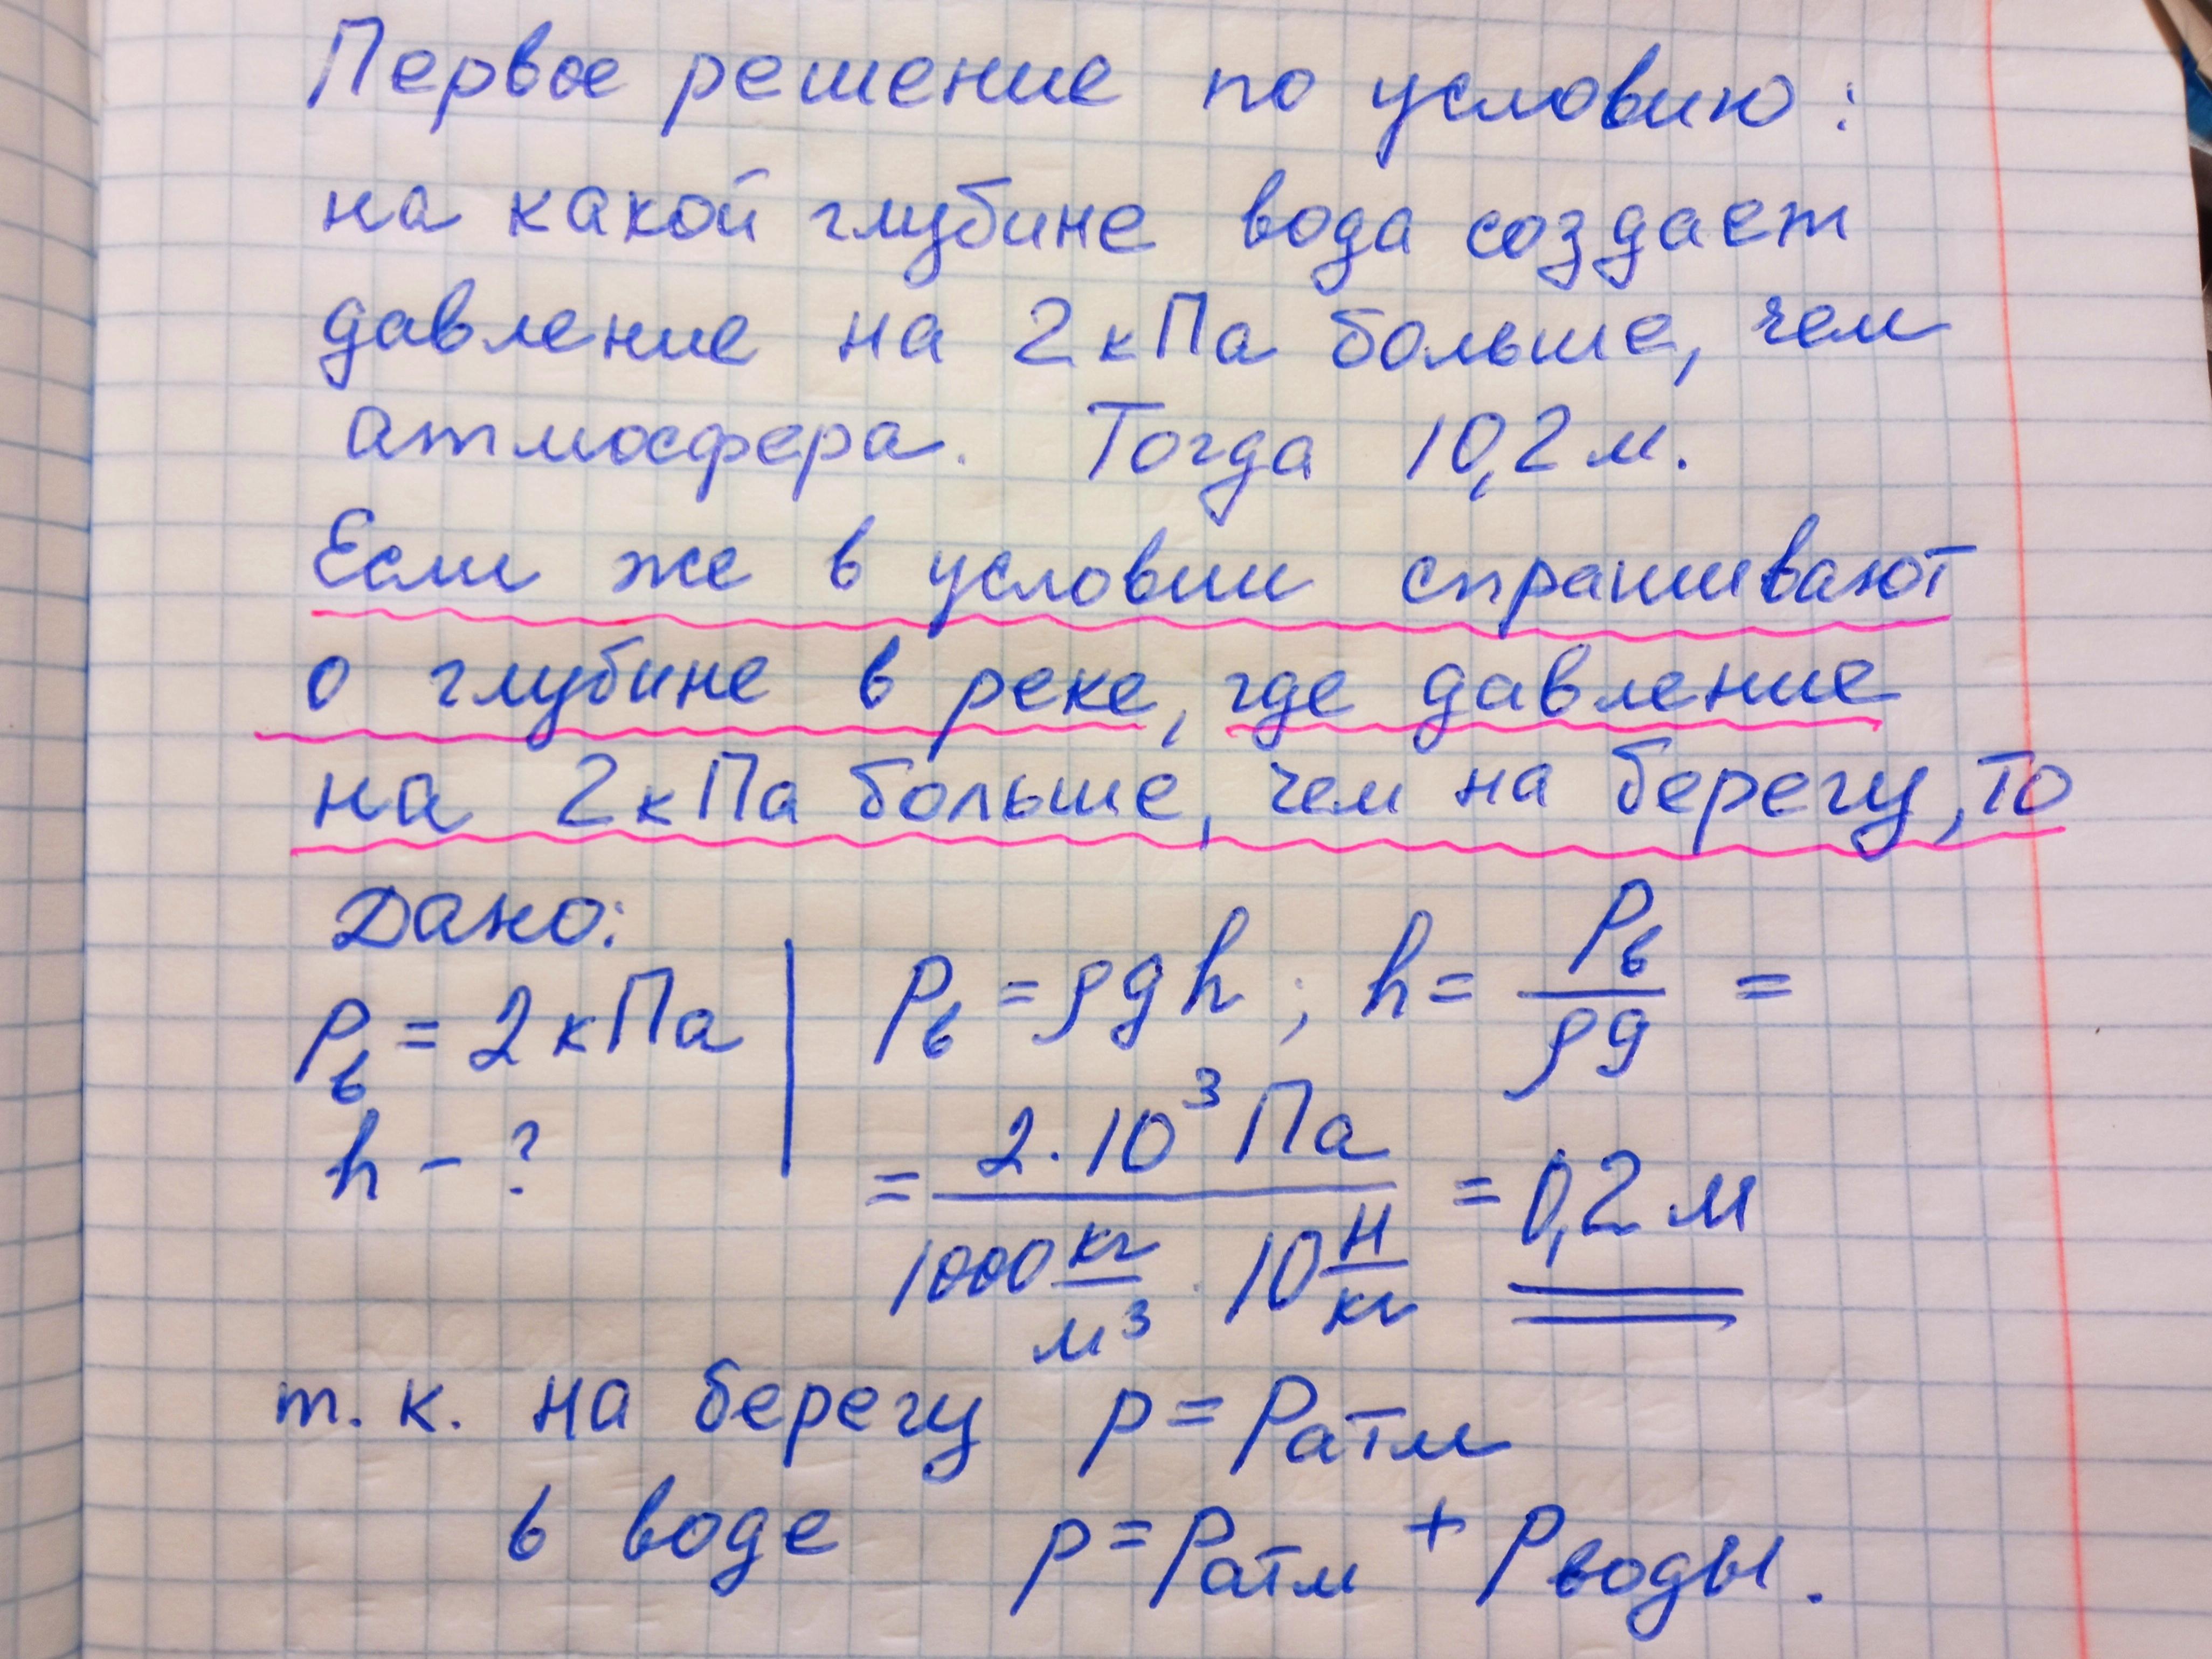 Первое решение по условию:
на какой глубине вода создает
давление на 2 кПа больше, чем
атмосфера. Тогда 10,2 м.
Если же в условии спрашивают
о глубине в реке, где давление
на 2 кПа больше, чем на берегу, то
Дано:
Pв = 2 кПа
h - ?
Pв = ρgh ; h = Pв/ρg =
= 2·10³ Па / 1000 кг/м³ · 10 Н/кг = 0,2 м
т. к. на берегу p = Pатм
в воде p = Pатм + Pводы.